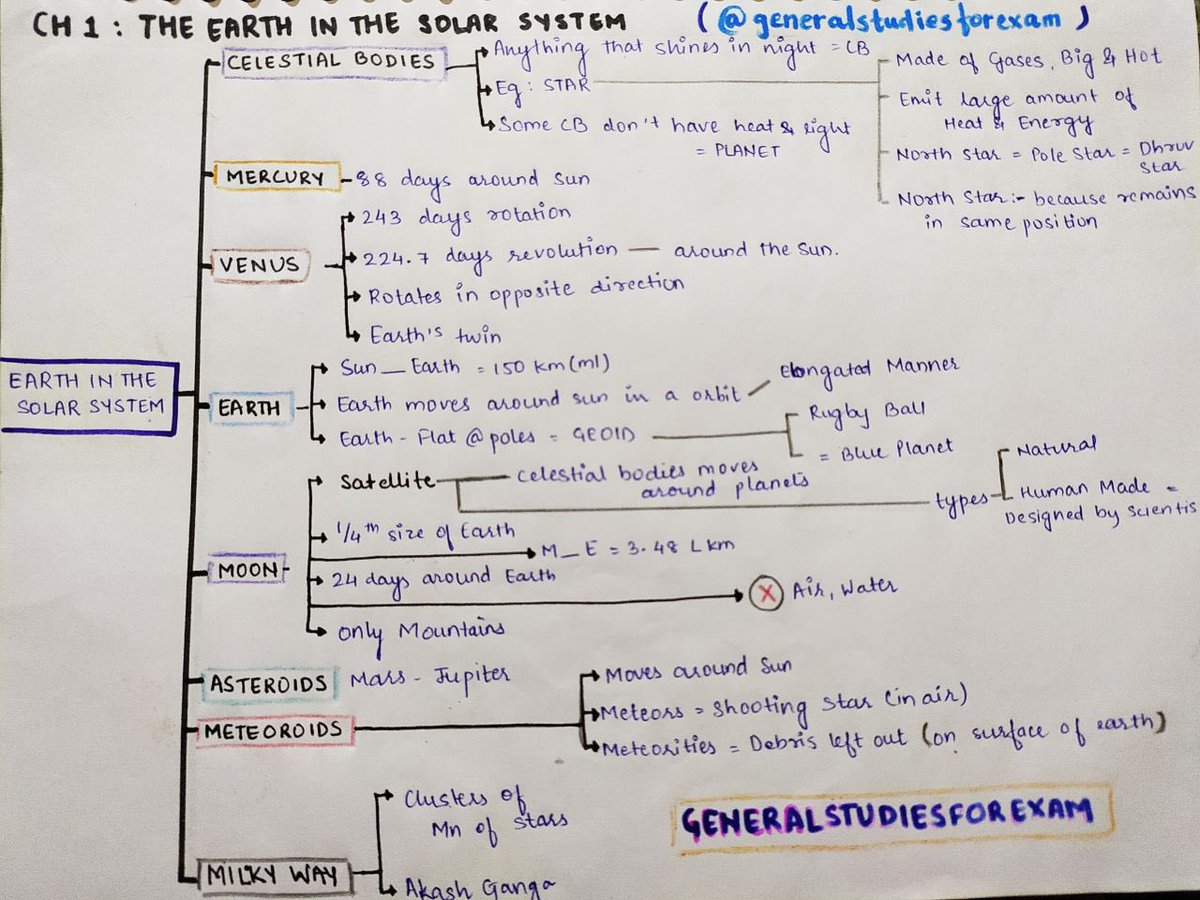 CH 1 : THE EARTH IN THE SOLAR SYSTEM (@generalstudiesforexam)
EARTH IN THE
SOLAR SYSTEM
CELESTIAL BODIES
Anything that shines in night = CB
Eg : STAR
Made of Gases, Big & Hot
Emit large amount of
Heat & Energy
North Star = Pole Star = Dhruv
Star
North Star :- because remains
in same position
Some CB don't have heat & light
= PLANET
MERCURY - 88 days around Sun
VENUS
243 days rotation
224.7 days revolution — around the Sun.
Rotates in opposite direction
Earth's twin
EARTH
Sun — Earth = 150 km (ml)
Earth moves around sun in a orbit
elongated Manner
Earth - Flat @ poles = GEOID
Rugby Ball
= Blue Planet
MOON
Satellite
Celestial bodies moves
around planets
types
Natural
Human Made =
Designed by Scientis
1/4th size of Earth
M — E = 3.48 L km
24 days around Earth
X Air, Water
only Mountains
ASTEROIDS Mars - Jupiter
METEOROIDS
Moves around Sun
Meteors = Shooting Star (in air)
Meteorities = Debris left out (on surface of earth)
MILKY WAY
Clusters of
Mn of stars
Akash Ganga
GENERALSTUDIESFOREXAM